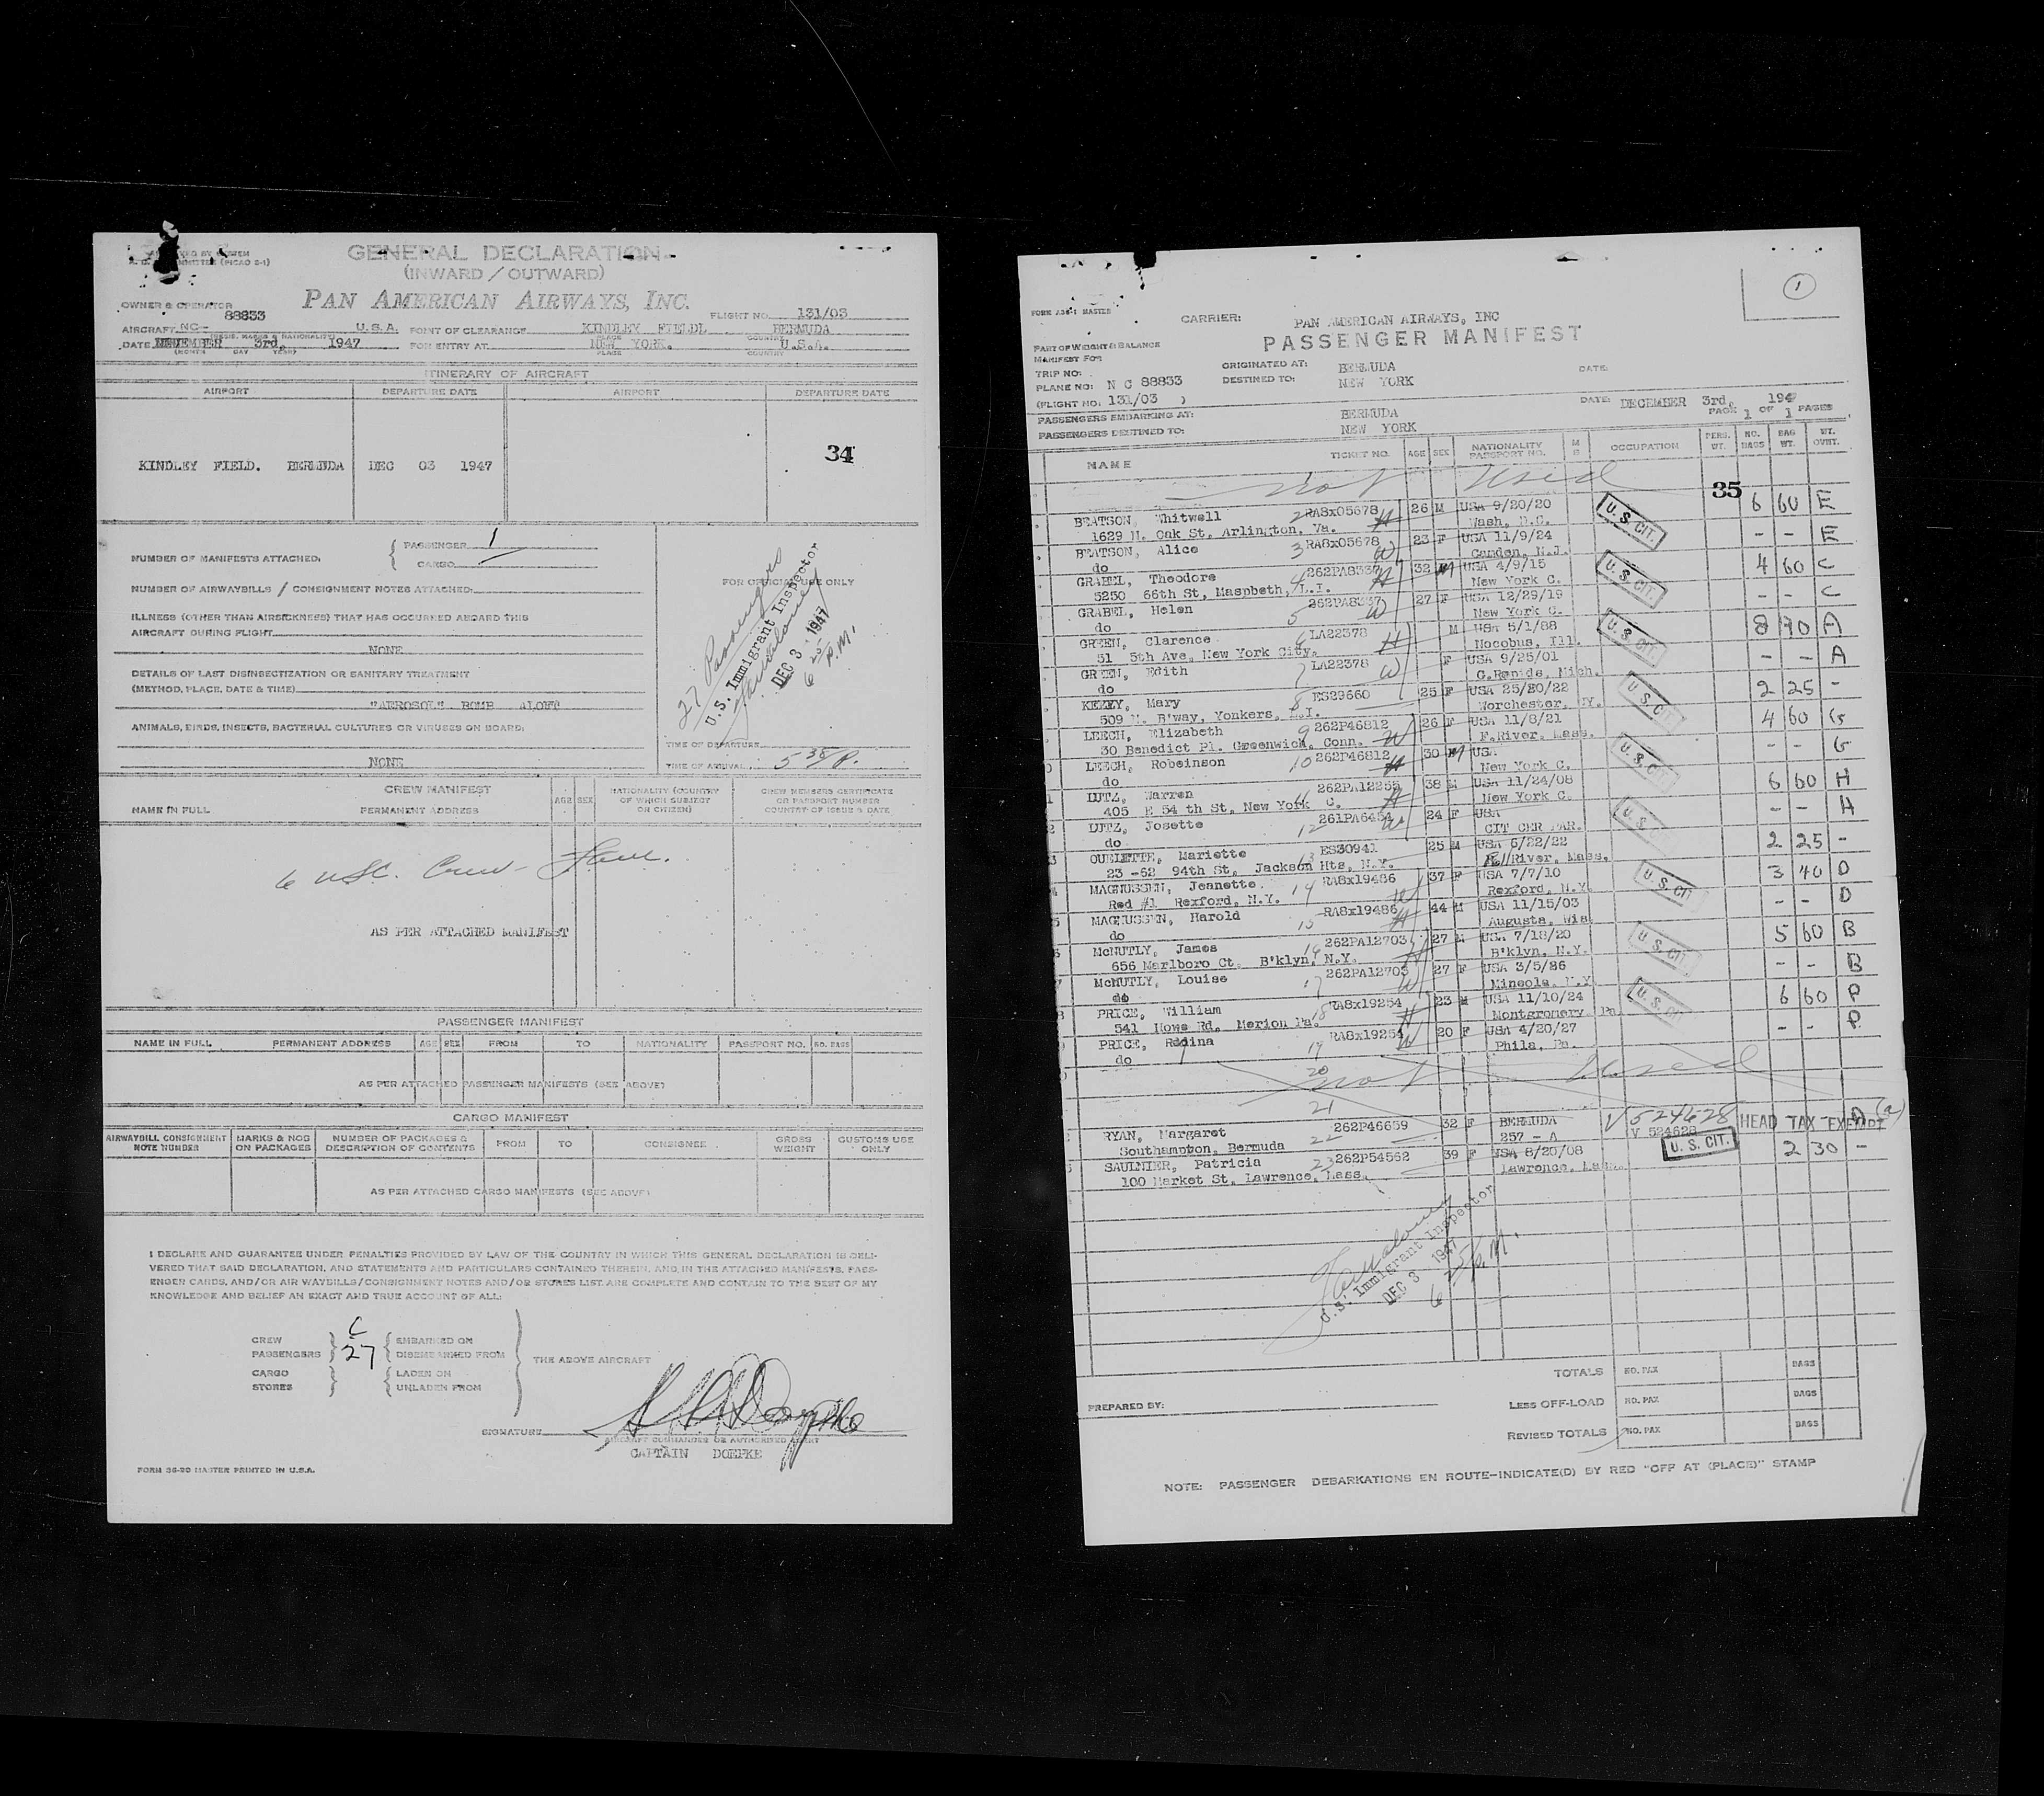 GENERAL DECLARATION
(INWARD / OUTWARD)
PAN AMERICAN AIRWAYS, INC.
OWNER & OPERATOR
88833
FLIGHT NO. 131/03
AIRCRAFT NC- U.S.A. POINT OF CLEARANCE KINDLEY FIELDL BERMUDA
DATE DECEMBER 3rd, 1947 FOR ENTRY AT NEW YORK. U.S.A.
(MONTH DAY YEAR) PLACE COUNTRY
ITINERARY OF AIRCRAFT
AIRPORT DEPARTURE DATE AIRPORT DEPARTURE DATE
34
KINDLEY FIELD. BERMUDA DEC 03 1947
NUMBER OF MANIFESTS ATTACHED: { PASSENGER 1
CARGO
NUMBER OF AIRWAYBILLS / CONSIGNMENT NOTES ATTACHED:
ILLNESS (OTHER THAN AIRSICKNESS) THAT HAS OCCURRED ABOARD THIS
AIRCRAFT DURING FLIGHT
NONE
DETAILS OF LAST DISINSECTIZATION OR SANITARY TREATMENT
(METHOD, PLACE, DATE & TIME)
"AEROSOL" BOMB ALOFT
ANIMALS, BIRDS, INSECTS, BACTERIAL CULTURES OR VIRUSES ON BOARD:
NONE
FOR OFFICIAL USE ONLY
27 Passengers
U.S. Immigrant Inspector
DEC 3 1947
6 25 P.M.
TIME OF DEPARTURE
TIME OF ARRIVAL 5 38 P.
CREW MANIFEST
NAME IN FULL PERMANENT ADDRESS AGE SEX NATIONALITY (COUNTRY OF WHICH SUBJECT OR CITIZEN) CREW MEMBERS CERTIFICATE OR PASSPORT NUMBER COUNTRY OF ISSUE & DATE
6 USC. Crew
AS PER ATTACHED MANIFEST
PASSENGER MANIFEST
NAME IN FULL PERMANENT ADDRESS AGE SEX FROM TO NATIONALITY PASSPORT NO. NO. BAGS
AS PER ATTACHED PASSENGER MANIFESTS (SEE ABOVE)
CARGO MANIFEST
AIRWAYBILL CONSIGNMENT NOTE NUMBER MARKS & NOS ON PACKAGES NUMBER OF PACKAGES & DESCRIPTION OF CONTENTS FROM TO CONSIGNEE GROSS WEIGHT CUSTOMS USE ONLY
AS PER ATTACHED CARGO MANIFESTS (SEE ABOVE)
I DECLARE AND GUARANTEE UNDER PENALTIES PROVIDED BY LAW OF THE COUNTRY IN WHICH THIS GENERAL DECLARATION IS DELI-
VERED THAT SAID DECLARATION, AND STATEMENTS AND PARTICULARS CONTAINED THEREIN, AND IN THE ATTACHED MANIFESTS, PASS-
ENGER CARDS, AND/OR AIR WAYBILLS/CONSIGNMENT NOTES AND/OR STORES LIST, ARE COMPLETE AND CONTAIN TO THE BEST OF MY
KNOWLEDGE AND BELIEF AN EXACT AND TRUE ACCOUNT OF ALL:
CREW 6 EMBARKED ON
PASSENGERS 27 DISEMBARKED FROM
THE ABOVE AIRCRAFT
CARGO LADEN ON
STORES UNLADEN FROM
SIGNATURE
AIRCRAFT COMMANDER OR AUTHORIZED AGENT
CAPTAIN DOEPKE
FORM 36-20 MASTER PRINTED IN U.S.A.
1
FORM A36-1 MASTER
CARRIER: PAN AMERICAN AIRWAYS, INC
PASSENGER MANIFEST
PART OF WEIGHT & BALANCE
MANIFEST FOR
TRIP NO: ORIGINATED AT: BERMUDA DATE:
PLANE NO: N C 88833 DESTINED TO: NEW YORK
(FLIGHT NO. 131/03 )
PASSENGERS EMBARKING AT: BERMUDA DATE: DECEMBER 3rd, 194
PASSENGERS DESTINED TO: NEW YORK PAGE 1 OF 1 PAGES
NAME TICKET NO. AGE SEX NATIONALITY PASSPORT NO. OCCUPATION PERS. WT. NO. BAGS BAG WT. WT. OVWT.
not used
35
BEATSON, Whitwell 2 RA8x05678 H 26 M USA 9/20/20 U.S. CIT. 6 60 E
1629 N. Oak St, Arlington, Va. Wash, D.C.
BEATSON, Alice 3 RA8x05678 W 23 F USA 11/9/24 - - E
do Camden, N.J.
GRABEL, Theodore 4 262PA8337 H 32 M USA 4/9/15 U.S. CIT. 4 60 C
5250 66th St, Maspbeth, L.I. New York C.
GRABEL, Helen 5 262PA8337 W 27 F USA 12/29/19 - - C
do New York C.
GREEN, Clarence 6 LA22378 H M USA 5/1/88 U.S. CIT. 8 70 A
51 5th Ave, New York City. Nocobus, Ill.
GREEN, Edith 7 LA22378 W F USA 9/25/01 - - A
do G.Rapids, Mich.
KEZEY, Mary 8 ES29660 25 F USA 25/20/22 U.S. CIT 2 25 -
509 N. B'way, Yonkers, L.I. Worchester, NY.
LEECH, Elizabeth 9 262P46812 W 26 F USA 11/8/21 4 60 G
30 Benedict Pl. Greenwick, Conn. F.River, Mass.
LEECH, Robeinson 10 262P46812 H 30 M USA U.S. CIT - - G
do New York C.
DUTZ, Warren 11 262PA12259 H 38 M USA 11/24/08 6 60 H
405 E 54 th St, New York C. New York C.
DUTZ, Josette 12 261PA6454 W 24 F USA U.S. - - H
do CIT CER PAR.
OUELETTE, Mariette 13 ES30941 25 M USA 6/22/22 2 25 -
23 -62 94th St, Jackson Hts, N.Y. River, Mass,
MAGNUSSEN, Jeanette. 14 RA8x19486 W 37 F USA 7/7/10 U.S. CIT 3 40 D
Red #1 Rexford, N.Y. Rexford, N.Y.
MAGNUSSEN, Harold 15 RA8x19486 H 44 M USA 11/15/03 - - D
do Augusta, Wis.
McNUTLY, James 16 262PA12703 H 27 M USA 7/18/20 U.S. CIT 5 60 B
656 Marlboro Ct. B'klyn, N.Y. B'klyn, N.Y.
McNUTLY, Louise 17 262PA12703 W 27 F USA 3/5/26 - - B
do Mineola, N.Y
PRICE, William 18 RA8x19254 H 23 M USA 11/10/24 U.S. CIT 6 60 P
541 Hows Rd, Merion Pa. Montgromery, Pa
PRICE, Regina 19 RA8x19254 W 20 F USA 4/20/27 - - P
do Phila, Pa.
20 not used
21
RYAN, Margaret 22 262P46659 32 F BERMUDA V 524628 HEAD TAX EXEMPT (a)
Southampton, Bermuda 257 - A V 524628
SAULNIER, Patricia 23 262P54562 39 F USA 8/20/08 U. S. CIT. 2 30 -
100 Market St, Lawrence, Mass. Lawrence, Mass.
U.S. Immigrant Inspector
DEC 3 1947
6 25 P.M.
TOTALS NO. PAX BAGS
PREPARED BY: LESS OFF-LOAD NO. PAX BAGS
REVISED TOTALS NO. PAX BAGS
NOTE: PASSENGER DEBARKATIONS EN ROUTE-INDICATE(D) BY RED "OFF AT (PLACE)" STAMP